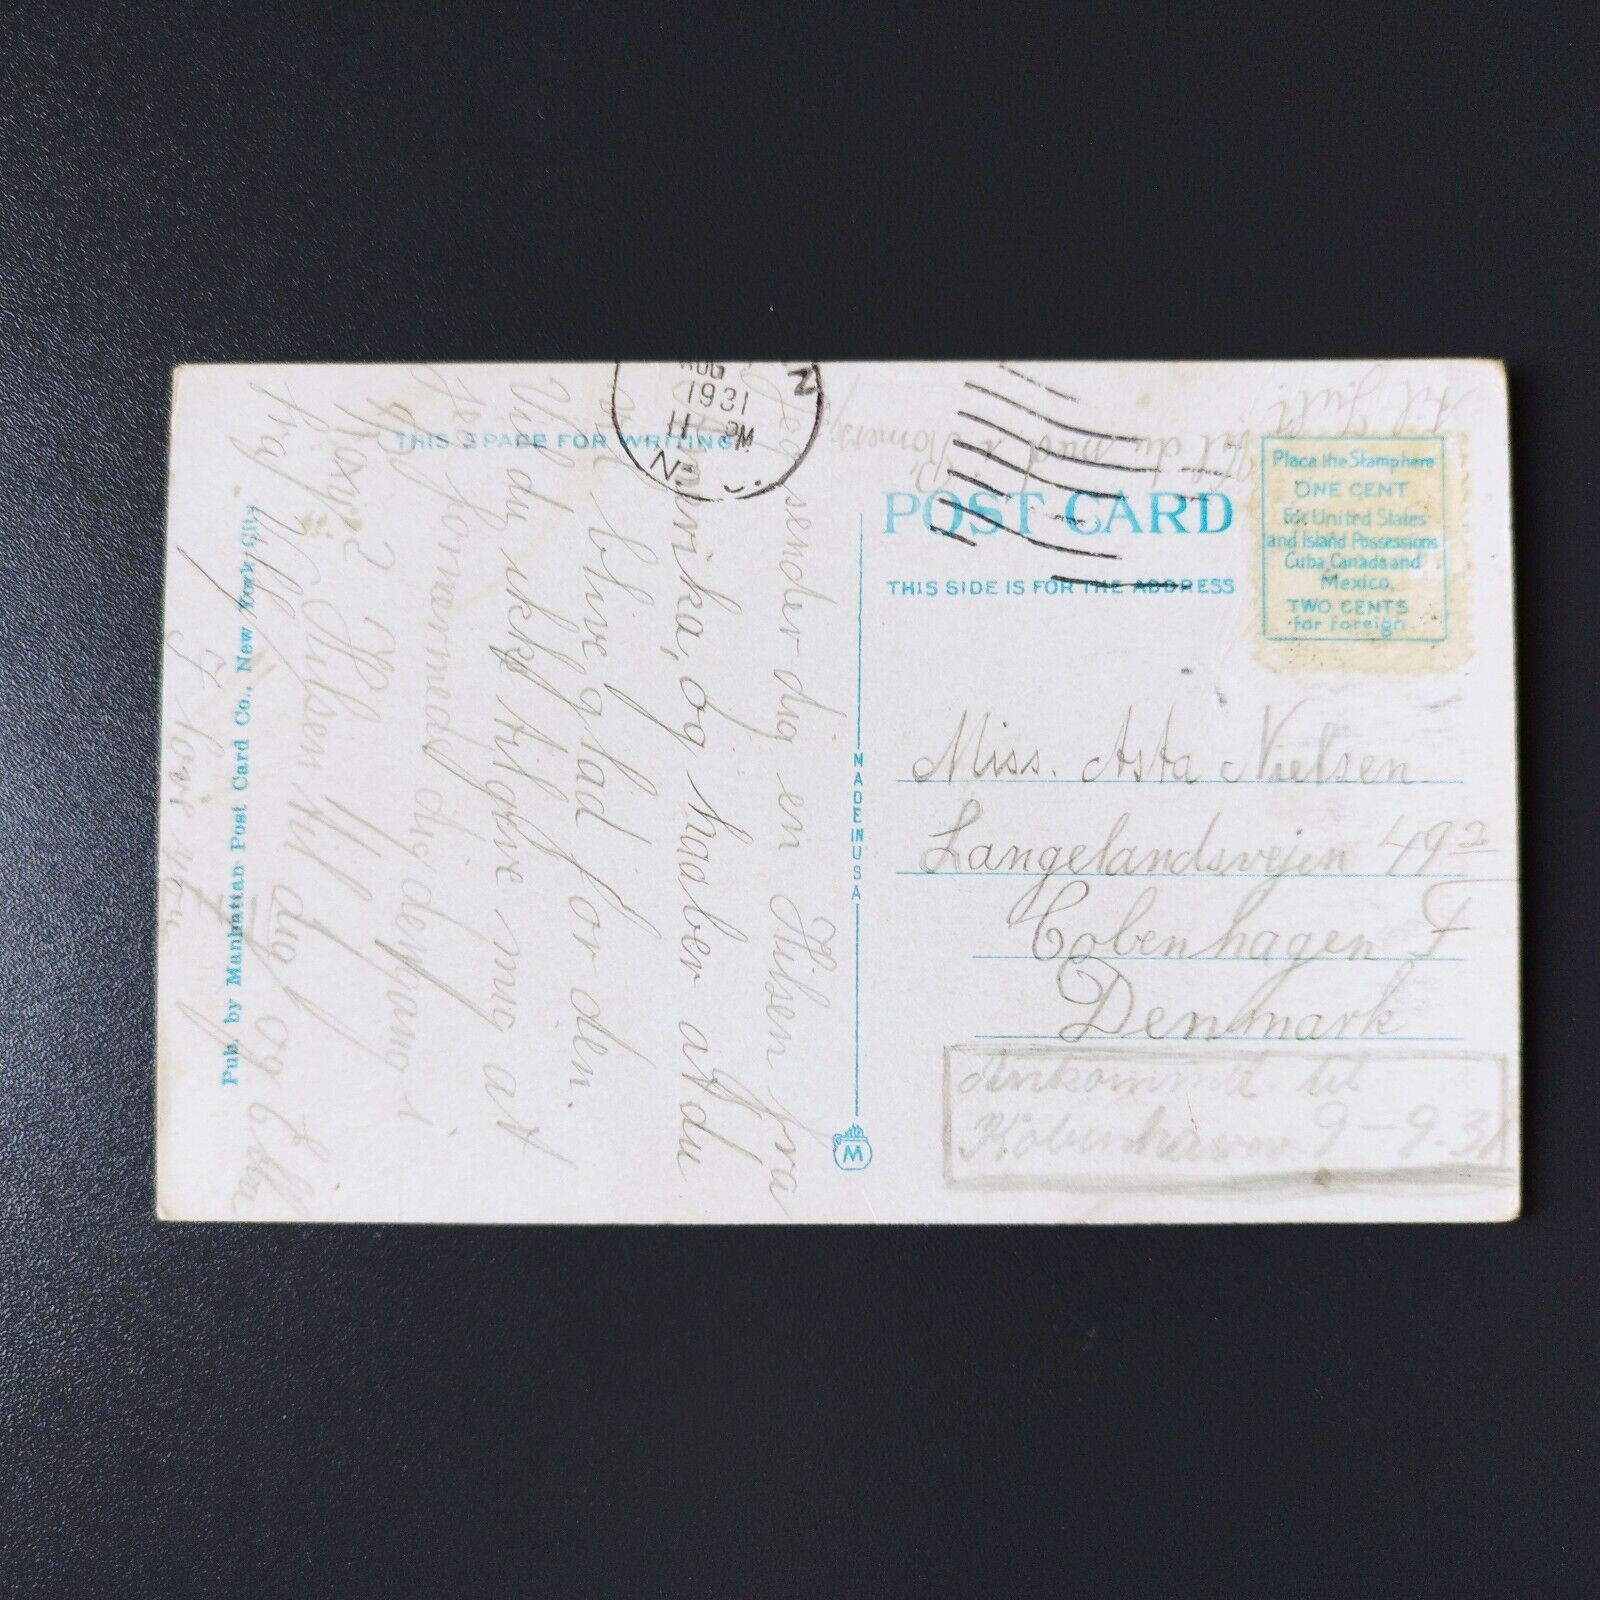 THIS SPACE FOR WRITING
AUG
1931
11 PM
N. J.
Jeg sender dig en Hilsen fra
Amerika, og haaber at du
vil blive glad for den.
Vil du ikke tilgive mig at
jeg fornærmede dig dengang i
2
Hilsen til dig og Ebba
fra Willy
Pub. by Manhattan Post Card Co., New York City
MADE IN USA
M
POST CARD
THIS SIDE IS FOR THE ADDRESS
Place the Stamp here
ONE CENT
For United States
and Island Possessions
Cuba, Canada and
Mexico.
TWO CENTS
for Foreign.
Miss. Asta Nielsen.
Langelandsvejen 49 2
Cobenhagen F
Denmark
Ankommet til
København 9-9-31